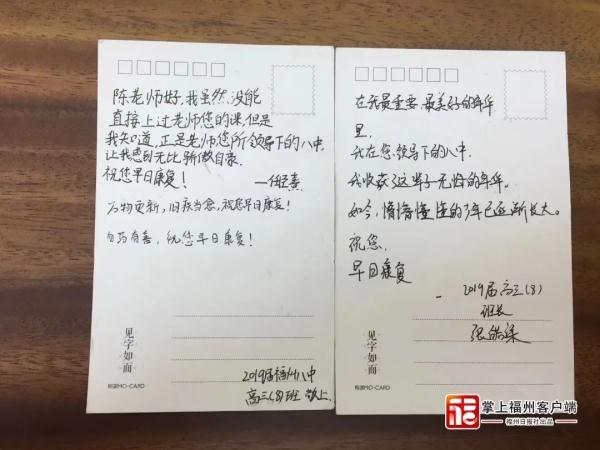 陈老师好,我虽然没能
直接上过老师您的课,但是
我知道,正是老师您所领导下的八中
让我感到无比骄傲自豪。
祝您早日康复!
万物更新,旧疾当愈,祝您早日康复!
勿药有喜,祝您早日康复!
见字如面
MO-CARD
2019届福州八中
高三(8)班 敬上.
在我最重要、最美好的年华
里,
我在您领导下的八中,
我收获了这辈子无悔的年华。
如今,懵懵懂懂的少年已逐渐长大。
祝您,
早日康复
2019届高三(8)
班长
见字如面
MO-CARD
掌上福州客户端
福州日报社出品